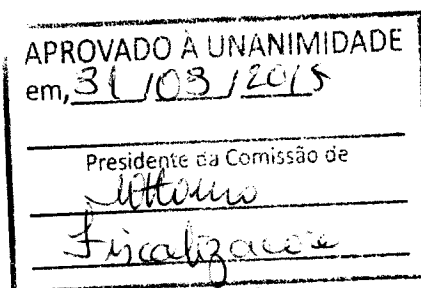 APROVADO À UNANIMIDADE
em, 31 / 03 / 2015
Presidente da Comissão de
Fiscalizacao e